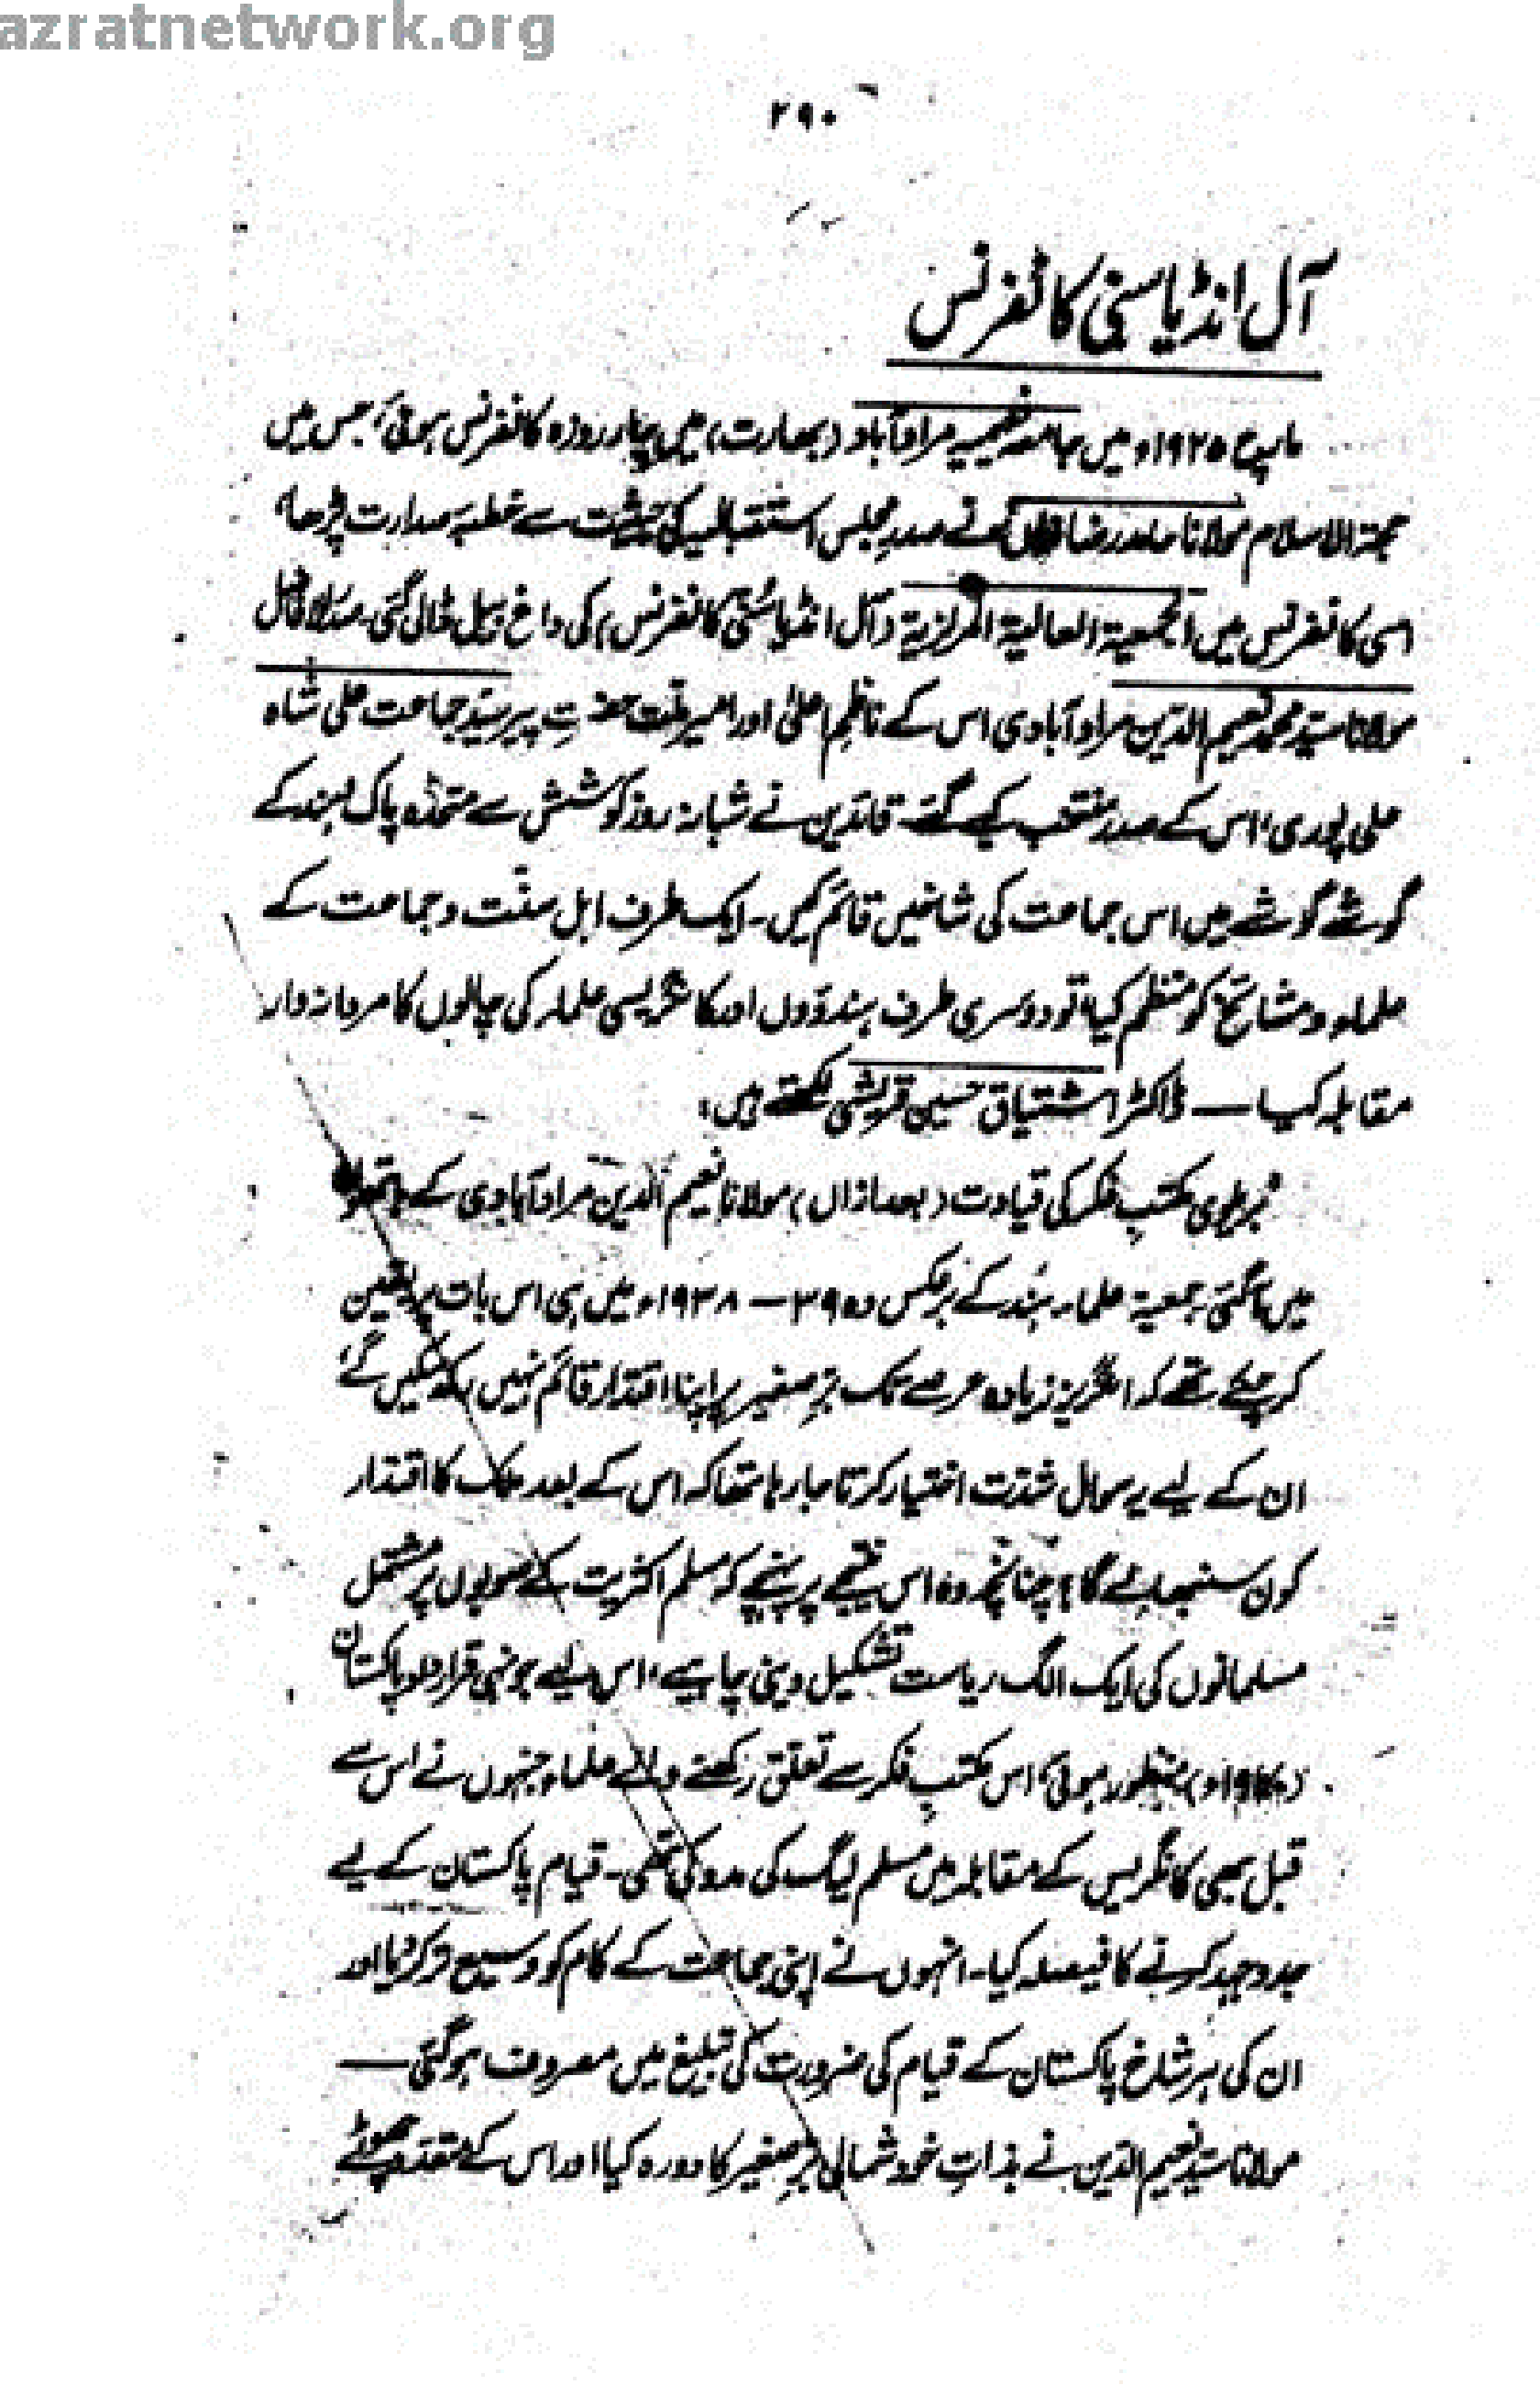 azratnetwork.org
۲۹۰
آل انڈیا سنی کانفرنس
مارچ ۱۹۲۵ء میں جامعہ نعیمیہ مرادآباد (بھارت) میں چار روزہ کانفرنس ہوئی، جس میں
حجۃ الاسلام مولانا حامد رضا خاں نے صدر مجلس استقبالیہ کی حیثیت سے خطبۂ صدارت پڑھا،
اسی کانفرنس میں الجمعیۃ العالیۃ المرکزیۃ (آل انڈیا سُنّی کانفرنس) کی داغ بیل ڈالی گئی۔ صدر الافاضل
مولانا سید محمد نعیم الدین مرادآبادی اس کے ناظمِ اعلیٰ اور امیر ملت حضرتِ پیر سیّد جماعت علی شاہ
علی پوری، اس کے صدر منتخب کیے گئے۔ قائدین نے شبانہ روز کوشش سے متحدہ پاک ہند کے
گوشے گوشے میں اس جماعت کی شاخیں قائم کیں۔ ایک طرف اہل سنّت و جماعت کے
علماء و مشائخ کو منظم کیا، تو دوسری طرف ہندوؤں اور کانگریسی علماء کی چالوں کا مردانہ وار
مقابلہ کیا — ڈاکٹر اشتیاق حسین قریشی لکھتے ہیں:
بریلوی مکتبِ فکر کی قیادت (بعد ازاں) مولانا نعیم الدین مرادآبادی کے ہاتھوں
میں آ گئی، جمعیۃ علماء ہند کے برعکس وہ ۳۹ — ۱۹۳۸ء میں ہی اس بات پر یقین
کر چکے تھے کہ انگریز زیادہ عرصے تک برِصغیر پر اپنا اقتدار قائم نہیں رکھ سکیں گے،
ان کے لیے یہ سوال شدّت اختیار کرتا جا رہا تھا کہ اس کے بعد ملک کا اقتدار
کون سنبھالے گا؟ چنانچہ وہ اس نتیجے پر پہنچے کہ مسلم اکثریت کے صوبوں پر مشتمل
مسلمانوں کی ایک الگ ریاست تشکیل دینی چاہیے، اس لیے جونہی قراردادِ پاکستان
(۱۹۴۰ء) منظور ہوئی، اس مکتبِ فکر سے تعلق رکھنے والے علماء جنہوں نے اس سے
قبل بھی کانگریس کے مقابلہ میں مسلم لیگ کی مدد کی تھی۔ قیام پاکستان کے لیے
جدوجہد کرنے کا فیصلہ کیا۔ انہوں نے اپنی جماعت کے کام کو وسیع تر کر دیا اور
ان کی ہر شاخ پاکستان کے قیام کی ضرورت کی تبلیغ میں مصروف ہو گئی —
مولانا سید نعیم الدین نے بذاتِ خود شمالی برِصغیر کا دورہ کیا اور اس کے متعدد چھوٹے